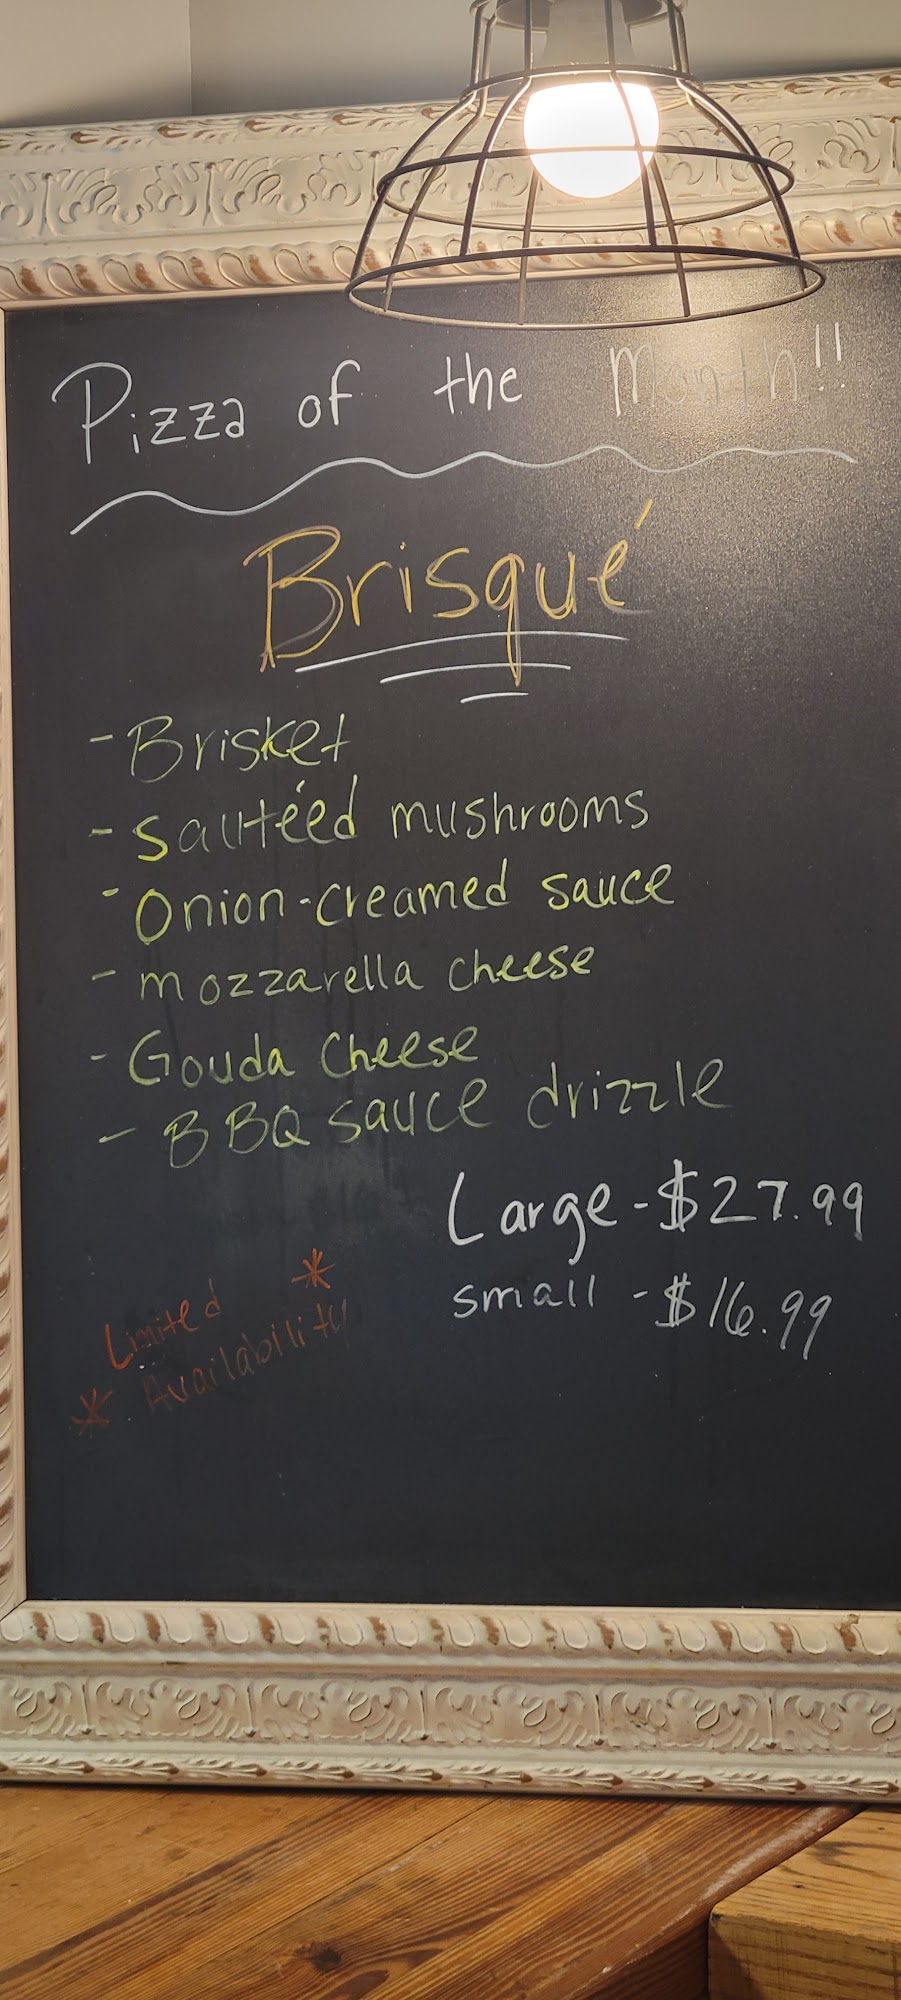 Pizza of the Month!!
Brisqué
- Brisket
- Sautéed mushrooms
- Onion-creamed sauce
- mozzarella cheese
- Gouda Cheese
- BBQ sauce drizzle
Large - $27.99
small - $16.99
Limited *
* Availability